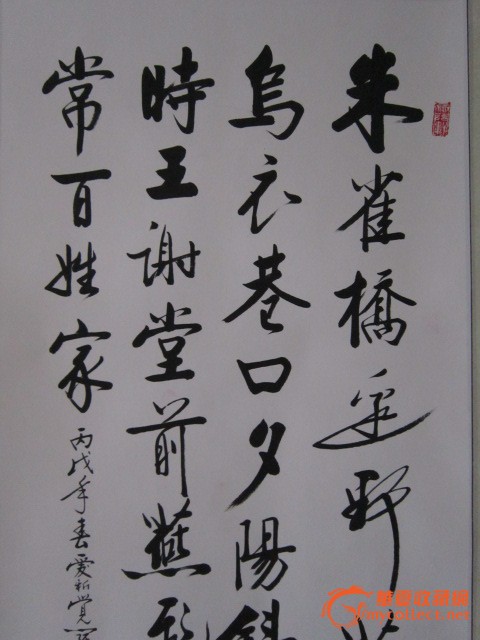 朱雀橋邊野
烏衣巷口夕陽斜
時王謝堂前燕
常百姓家
丙戌年春愛新覺
华夏收藏网